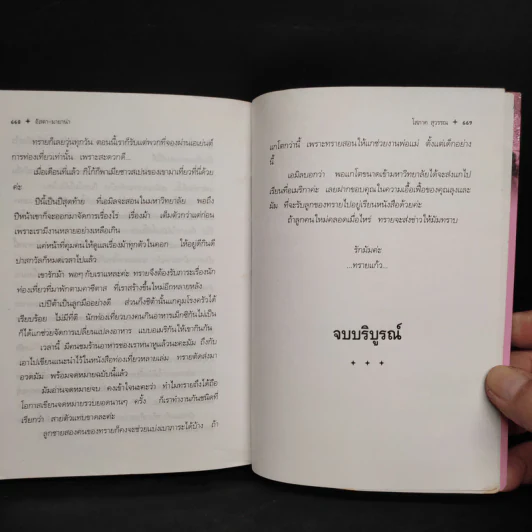 ๔๔๘ ✦ อีสตา-มายาน่า
ทรายก็เลยวุ่นทุกวัน ตอนนี้เราก็รับแต่พวกที่จองผ่านเอเย่นต์
การท่องเที่ยวเท่านั้น เพราะสะดวกดี...
เมื่อเดือนที่แล้ว กีโก้ก็พาเมียชาวสเปนของเขามาเที่ยวที่นี่ด้วย
ค่ะ
ปีนี้เป็นปีสุดท้าย ที่เอมิลจะสอนในมหาวิทยาลัย พอถึง
ปีหน้าเขาก็จะออกมาจัดการเรื่องไร่ เรื่องม้า เต็มตัวกว่าแต่ก่อน
เพราะเรามีงานหลายอย่างเหลือเกิน
แค่หน้าที่คุมคนให้ดูแลเรื่องม้าทุกตัวในคอก ให้อยู่ดีกินดี
ปาสกวัลก็หมดเวลาไปแล้ว
เขารักม้า พอๆ กับเราแหละค่ะ ทรายจึงต้องรับภาระเรื่องนัก
ท่องเที่ยวที่มาพักตามคาซิตาส ที่เราสร้างขึ้นใหม่อีกหลายหลัง
เปปีต้าเป็นลูกมืออย่างดี ส่วนกิ่งซิต้านั้นแกคุมโรงครัวได้
เรียบร้อย ไม่มีที่ติ นักท่องเที่ยวบางคนกินอาหารเม็กซิกันไม่เป็น
ก็ได้แกช่วยจัดการเปลี่ยนแปลงอาหาร แบบอเมริกันให้เขากินกัน
เวลานี้ มีคนชมร้านอาหารของเราหนาหูแล้วนะคะมัม ถึงกับ
เอาไปเขียนแนะนำไว้ในหนังสือท่องเที่ยวหลายเล่ม ทรายตัดส่งมา
อวดมัม พร้อมจดหมายฉบับนี้แล้ว
มัมอ่านจดหมายจบ คงเข้าใจนะคะว่า ทำไมทรายถึงได้ถือ
โอกาสเขียนจดหมายรวบยอดนานๆ ครั้ง ก็เราทำงานกันชนิดที่
เรียกว่า สายตัวแทบขาดละค่ะ
ลูกชายสองคนของทรายก็คงจะช่วยแบ่งเบาภาระได้บ้าง ถ้า
โสภาค สุวรรณ ✦ ๔๔๙
แกโตกว่านี้ เพราะทรายสอนให้แกช่วยงานพ่อแม่ ตั้งแต่เด็กอย่าง
นี้
เอมิลบอกว่า พอแกโตขนาดเข้ามหาวิทยาลัยได้จะส่งแกไป
เรียนที่อเมริกาค่ะ เลยฝากขอบคุณในความเอื้อเฟื้อของคุณลุงและ
มัม ที่จะรับลูกของทรายไปอยู่เรียนหนังสือด้วยค่ะ
ถ้าลูกคนใหม่คลอดเมื่อไหร่ ทรายจะส่งข่าวให้มัมทราบ
รักมัมค่ะ
...ทรายแก้ว...
จบบริบูรณ์
✦ ✦ ✦